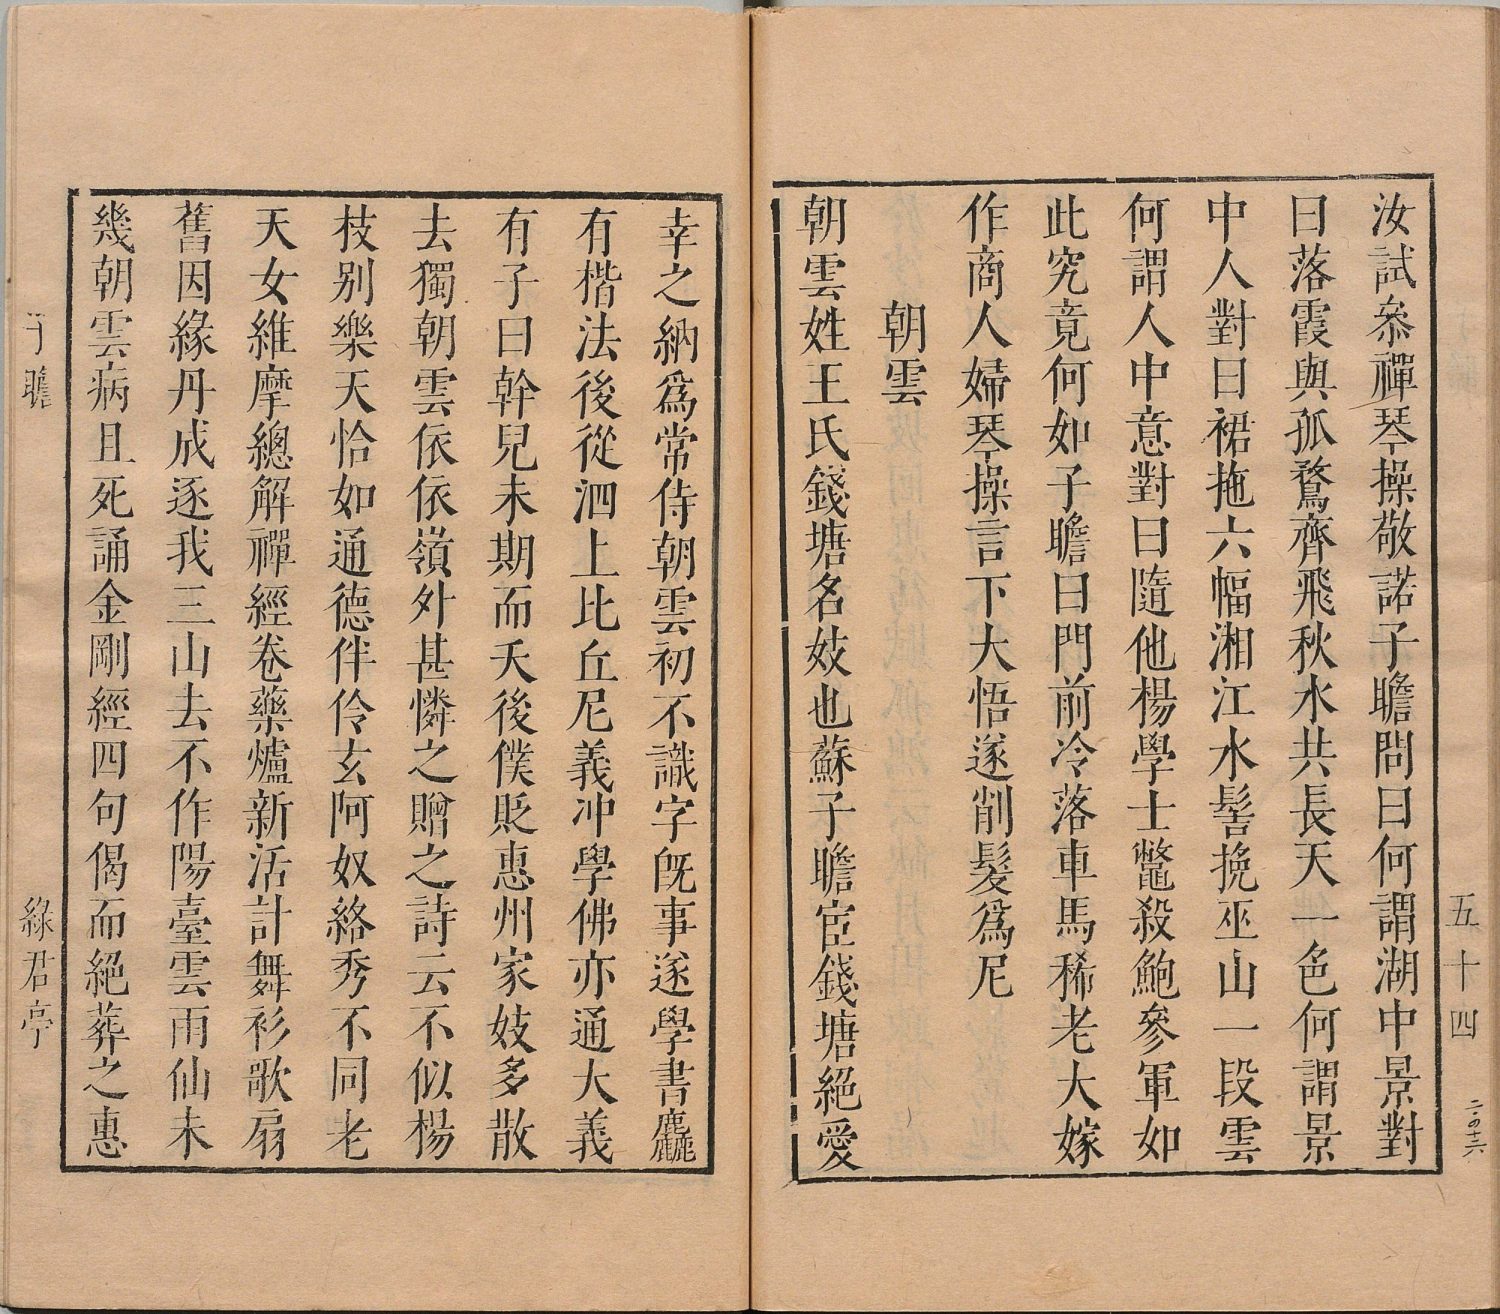 汝試叅禪琴操敬諾子瞻問曰何謂湖中景對
曰落霞與孤鶩齊飛秋水共長天一色何謂景
中人對曰裙拖六幅湘江水髻挽巫山一段雲
何謂人中意對曰隨他楊學士鼈殺鮑參軍如
此究竟何如子瞻曰門前冷落車馬稀老大嫁
作商人婦琴操言下大悟遂削髮爲尼
朝雲
朝雲姓王氏錢塘名妓也蘇子瞻宦錢塘絕愛
五十四
幸之納爲常侍朝雲初不識字旣事遂學書麤
有楷法後從泗上比丘尼義冲學佛亦通大義
有子曰幹兒未期而夭後僕貶惠州家妓多散
去獨朝雲依依嶺外甚憐之贈之詩云不似楊
枝別樂天恰如通德伴伶玄阿奴絡秀不同老
天女維摩總解禪經卷藥爐新活計舞衫歌扇
舊因緣丹成逐我三山去不作陽臺雲雨仙未
幾朝雲病且死誦金剛經四句偈而絕葬之惠
瞻
綠君亭